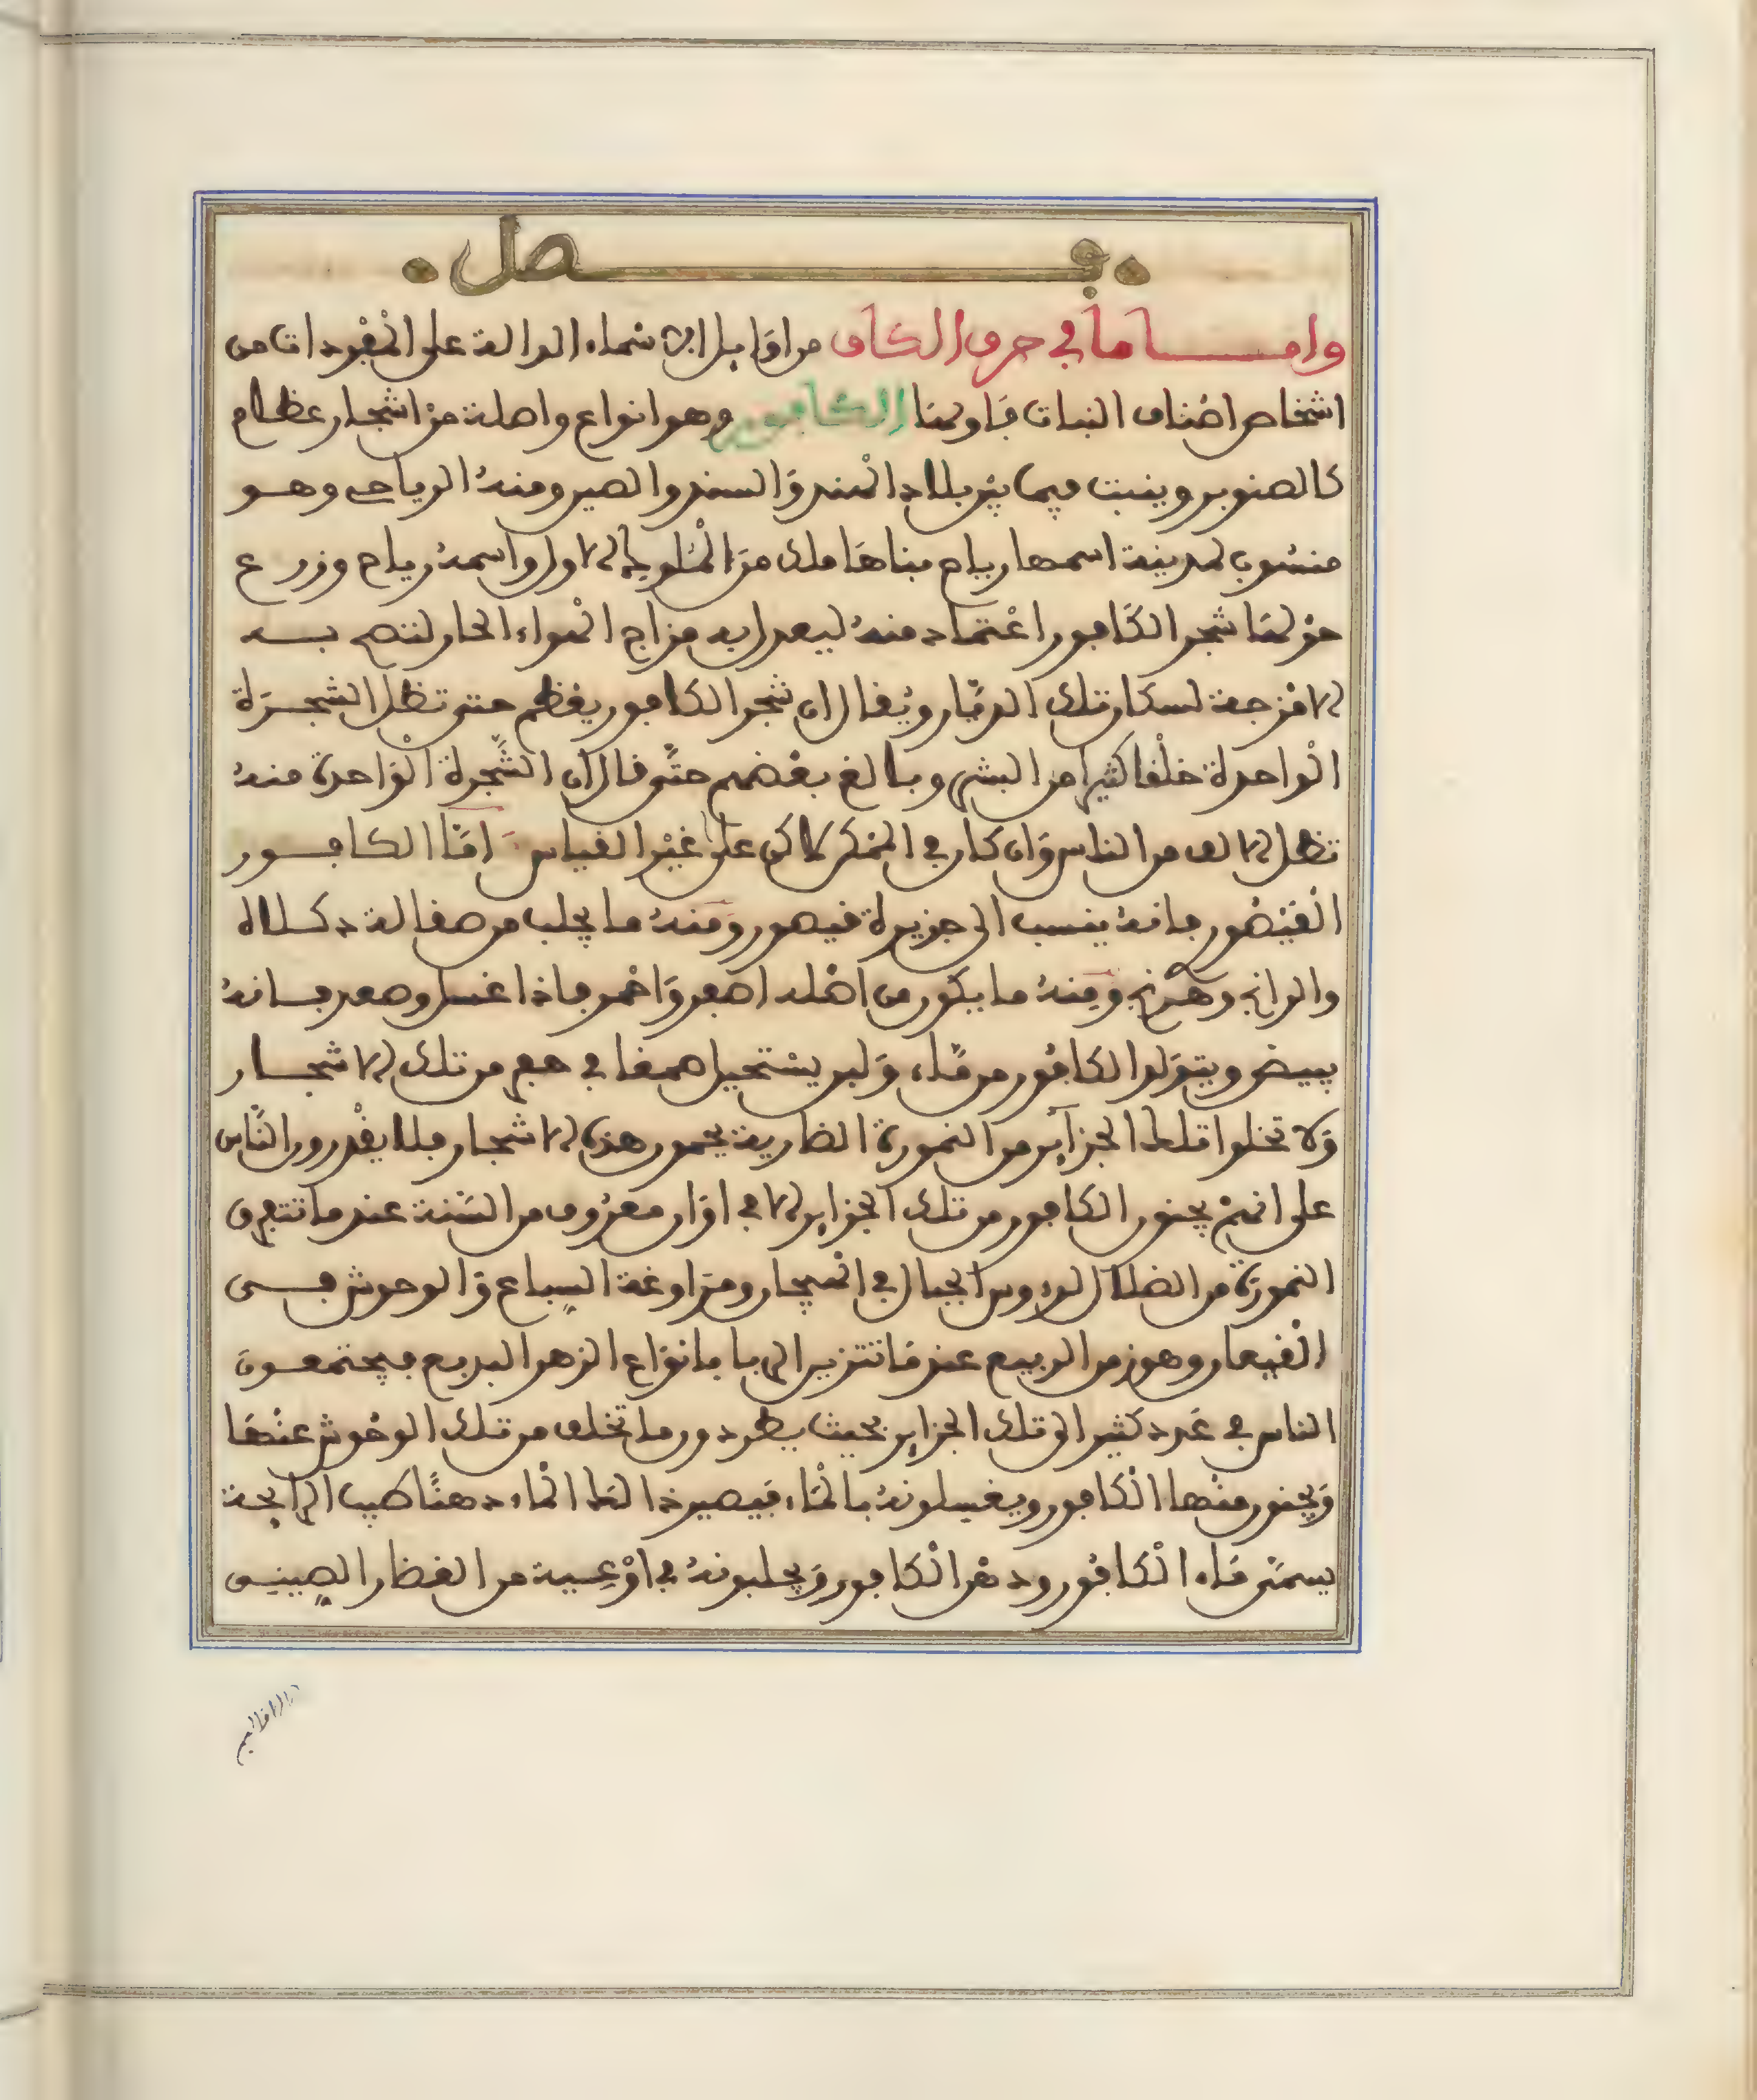 فصل
وامــا ما في حرف الكاف من اوايل الاسماء الدالة على المفردات من
اشخاص اصناف النبات فاولها الكافور وهو انواع واصله من اشجار عظام
كالصنوبر وينبت فيما بين بلاد الهند والسند والصين ومنه الرياحي وهو
منسوب لمدينة اسمها رياح بناها ملك من الملوك الاول واسمه رياح وزرع
حولها شجر الكافور اعتماد منه ليعدل به مزاج الهواء الحار لتصح به
الامزجة لسكان تلك الديار ويقال ان شجر الكافور يعظم حتى تظل الشجرة
الواحدة خلقا كثيرا من البشر وبالغ بعضهم حتى قال ان الشجرة الواحدة منه
تظل الالف من الناس وان كان في على غير القياس اما الكافور
القيصور فانه ينسب الى جزيرة قيصور ومنه ما يجلب من صقالة
والرانج ومنه ما يكون من اصله اصفر واحمر فاذا غسل وصعد فانه
يبيض ويتولد الكافور من ماء ولبن يستحيل صمغا في من تلك الاشجار
ولا تخلوا تلك الجزاير من النمورة الضارية يحمون هذه الاشجار فلا يقدرون الناس
على انهم يجنون الكافور من تلك الجزاير الا في اوان معروف من السنة عندما تتفرق
النمورة من الضلال لرءوس الجبال في الهيجان ومراوغة السباع والوحوش فــى
القيعان وهو زمن الربيع عند ما تتزين الربا بانواع الزهر البديع فيجتمعون
الناس في عدد كثير الى تلك الجزاير بحيث يطردون ما تخلف من تلك الوحوش عنها
ويجنون منها الكافور ويغسلونه بالماء فيصير ذالك الماء دهنا طيب الرايحة
يسمى ماء الكافور ودهن الكافور ويجلبونه في اوعية من الفخار الصينى